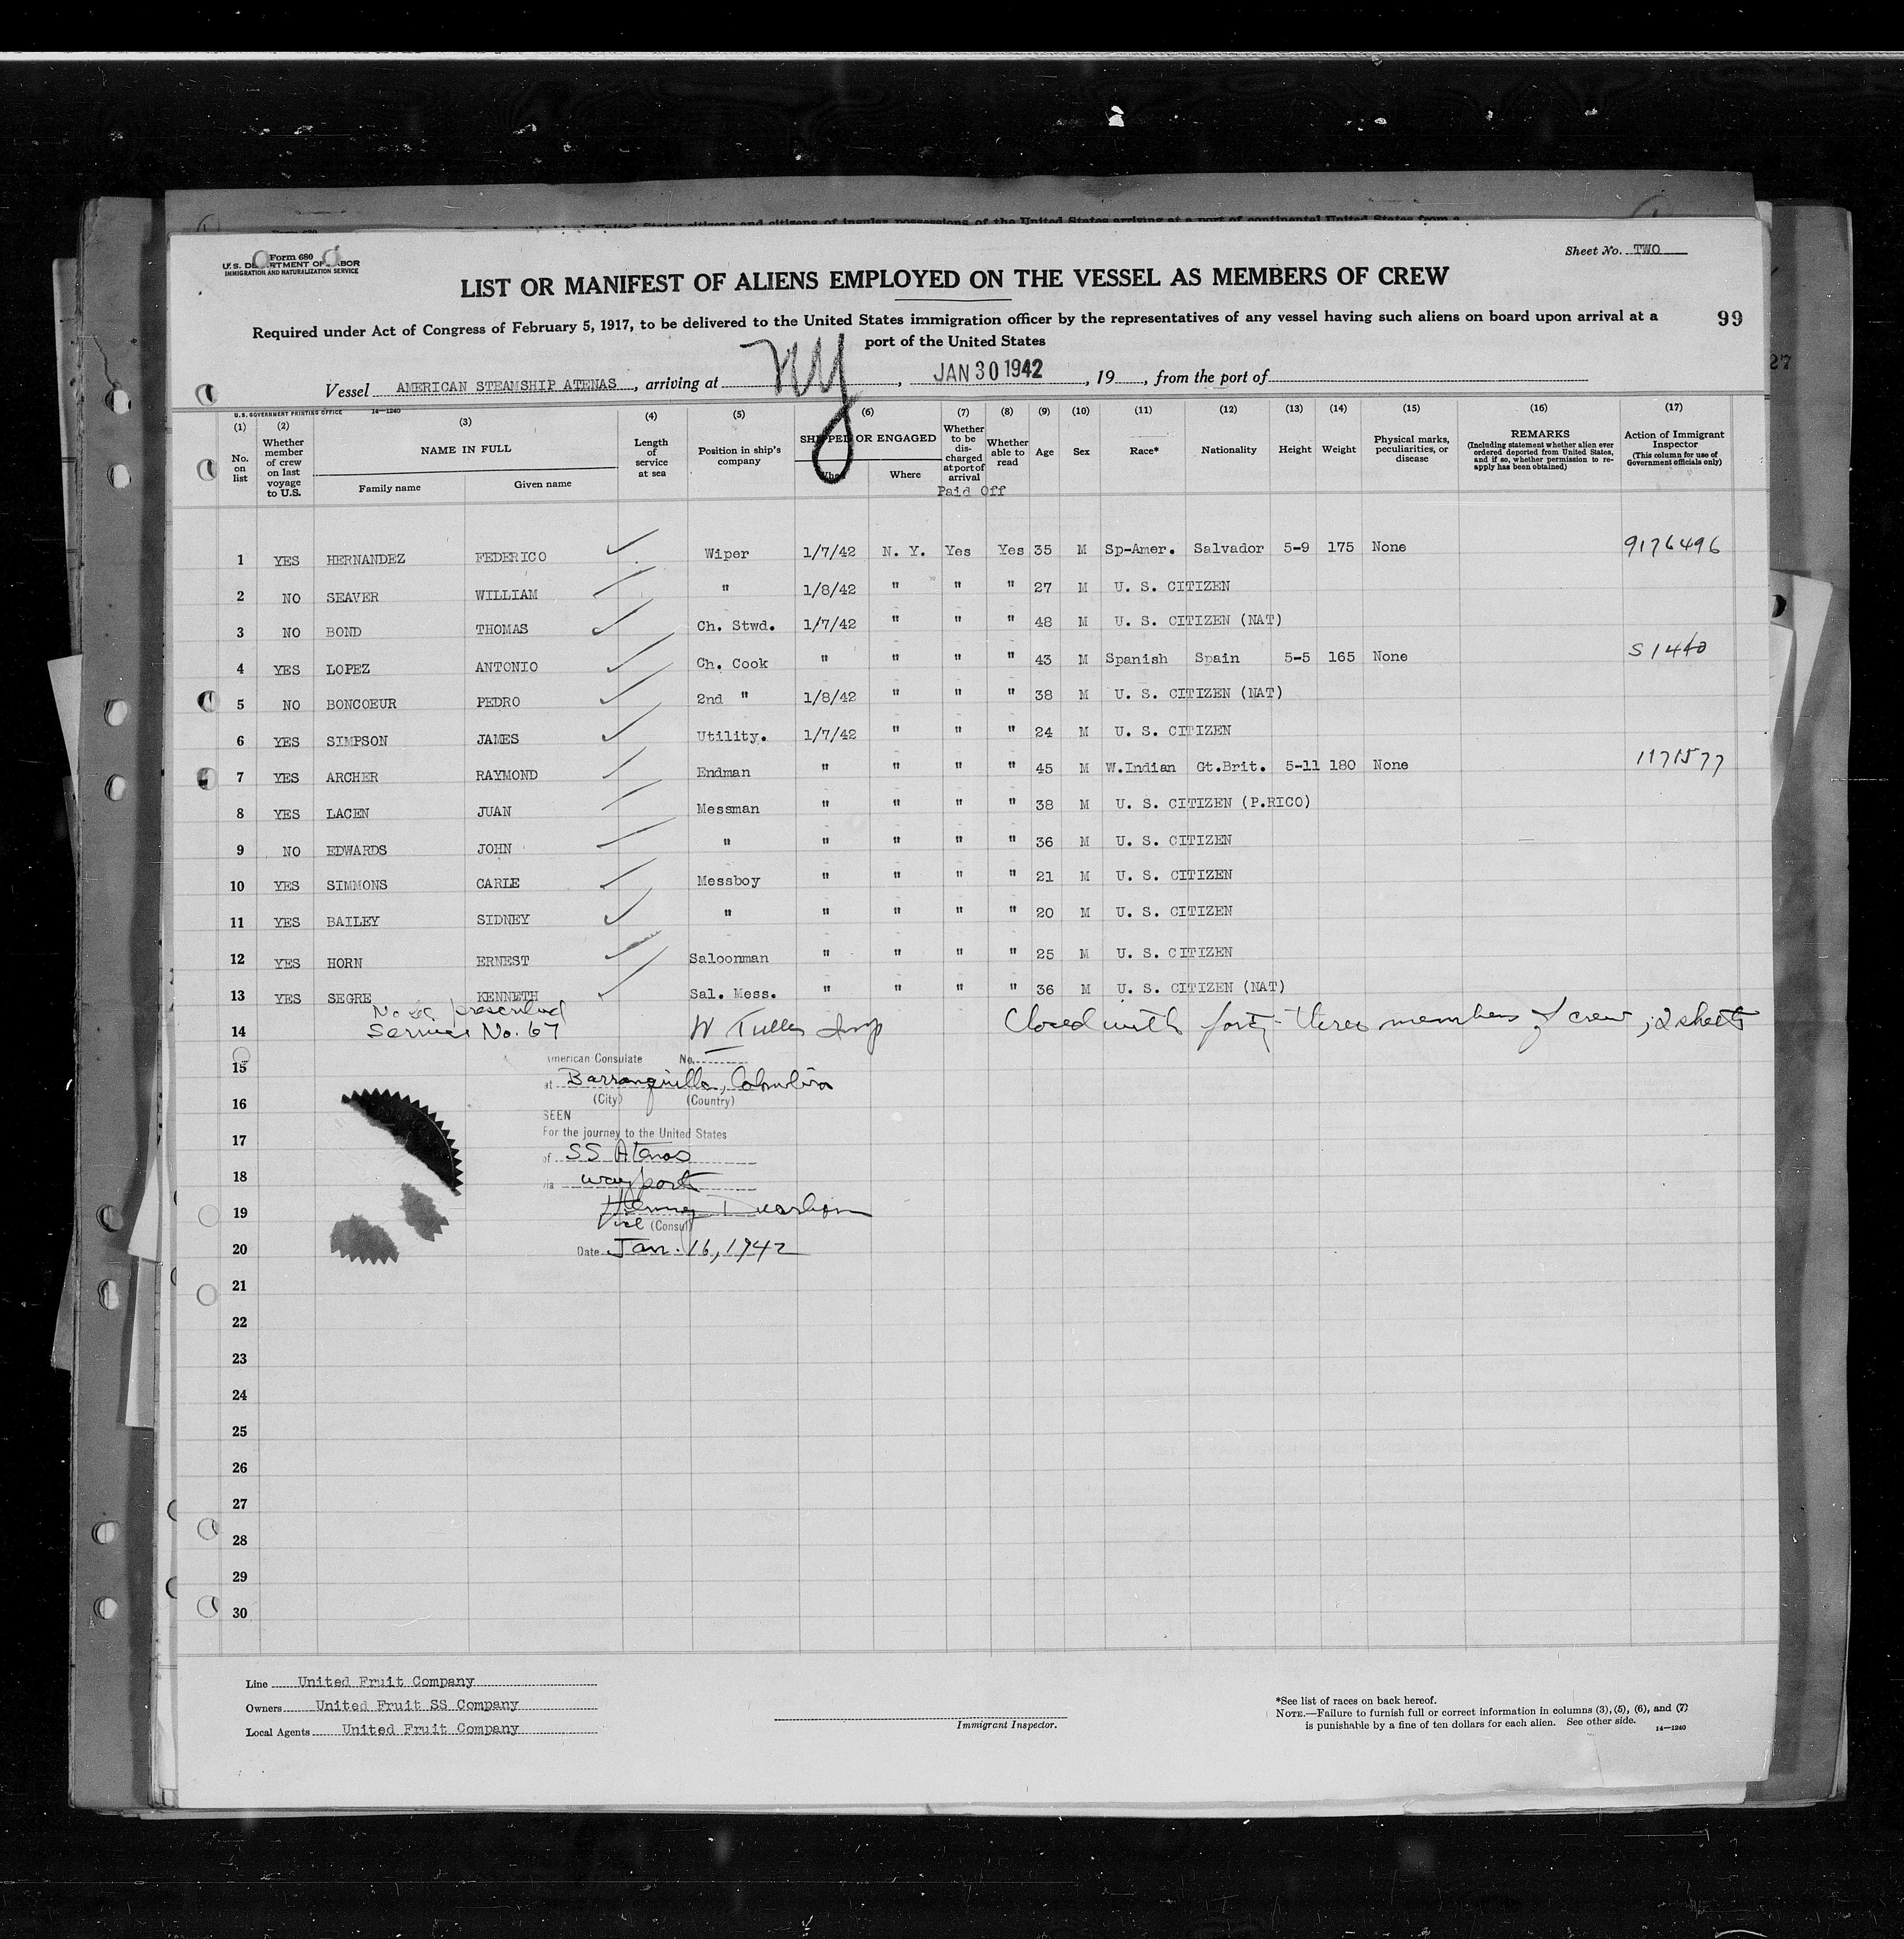 Form 680
U. S. DEPARTMENT OF LABOR
IMMIGRATION AND NATURALIZATION SERVICE
Sheet No. TWO
LIST OR MANIFEST OF ALIENS EMPLOYED ON THE VESSEL AS MEMBERS OF CREW
Required under Act of Congress of February 5, 1917, to be delivered to the United States immigration officer by the representatives of any vessel having such aliens on board upon arrival at a
port of the United States
99
Vessel AMERICAN STEAMSHIP ATENAS, arriving at NY, JAN 30 1942, 19, from the port of
U.S. GOVERNMENT PRINTING OFFICE 14—1240
(1) No. on list
(2) Whether member of crew on last voyage to U.S.
(3) NAME IN FULL Family name Given name
(4) Length of service at sea
(5) Position in ship's company
(6) SHIPPED OR ENGAGED When Where
(7) Whether to be discharged at port of arrival Paid Off
(8) Whether able to read
(9) Age
(10) Sex
(11) Race*
(12) Nationality
(13) Height
(14) Weight
(15) Physical marks, peculiarities, or disease
(16) REMARKS (Including statement whether alien ever ordered deported from United States, and if so, whether permission to reapply has been obtained)
(17) Action of Immigrant Inspector (This column for use of Government officials only)
1 YES HERNANDEZ FEDERICO Wiper 1/7/42 N. Y. Yes Yes 35 M Sp-Amer. Salvador 5-9 175 None 9176496
2 NO SEAVER WILLIAM " 1/8/42 " " " 27 M U. S. CITIZEN
3 NO BOND THOMAS Ch. Stwd. 1/7/42 " " " 48 M U. S. CITIZEN (NAT)
4 YES LOPEZ ANTONIO Ch. Cook " " " " 43 M Spanish Spain 5-5 165 None
5 NO BONCOEUR PEDRO 2nd " 1/8/42 " " " 38 M U. S. CITIZEN (NAT)
6 YES SIMPSON JAMES Utility. 1/7/42 " " " 24 M U. S. CITIZEN
7 YES ARCHER RAYMOND Endman " " " " 45 M W.Indian Gt.Brit. 5-11 180 None 1171577
8 YES LACEN JUAN Messman " " " " 38 M U. S. CITIZEN (P.RICO)
9 NO EDWARDS JOHN " " " " " 36 M U. S. CITIZEN
10 YES SIMMONS CARLE Messboy " " " " 21 M U. S. CITIZEN
11 YES BAILEY SIDNEY " " " " " 20 M U. S. CITIZEN
12 YES HORN ERNEST Saloonman " " " " 25 M U. S. CITIZEN
13 YES SEGRE KENNETH Sal. Mess. " " " " 36 M U. S. CITIZEN (NAT)
No fee prescribed
14 Service No. 67 Closed with forty-three members of crew, 2 sheets
American Consulate No.
15
at Barranquilla, Colombia
16 (City) (Country)
SEEN
17 For the journey to the United States
of SS Atenas
18 via way ports
19
Vice (Consul)
20 Date Jan. 16, 1942
21
22
23
24
25
26
27
28
29
30
Line United Fruit Company
Owners United Fruit SS Company
Local Agents United Fruit Company
Immigrant Inspector.
*See list of races on back hereof.
NOTE.—Failure to furnish full or correct information in columns (3), (5), (6), and (7)
is punishable by a fine of ten dollars for each alien. See other side. 14—1240
27